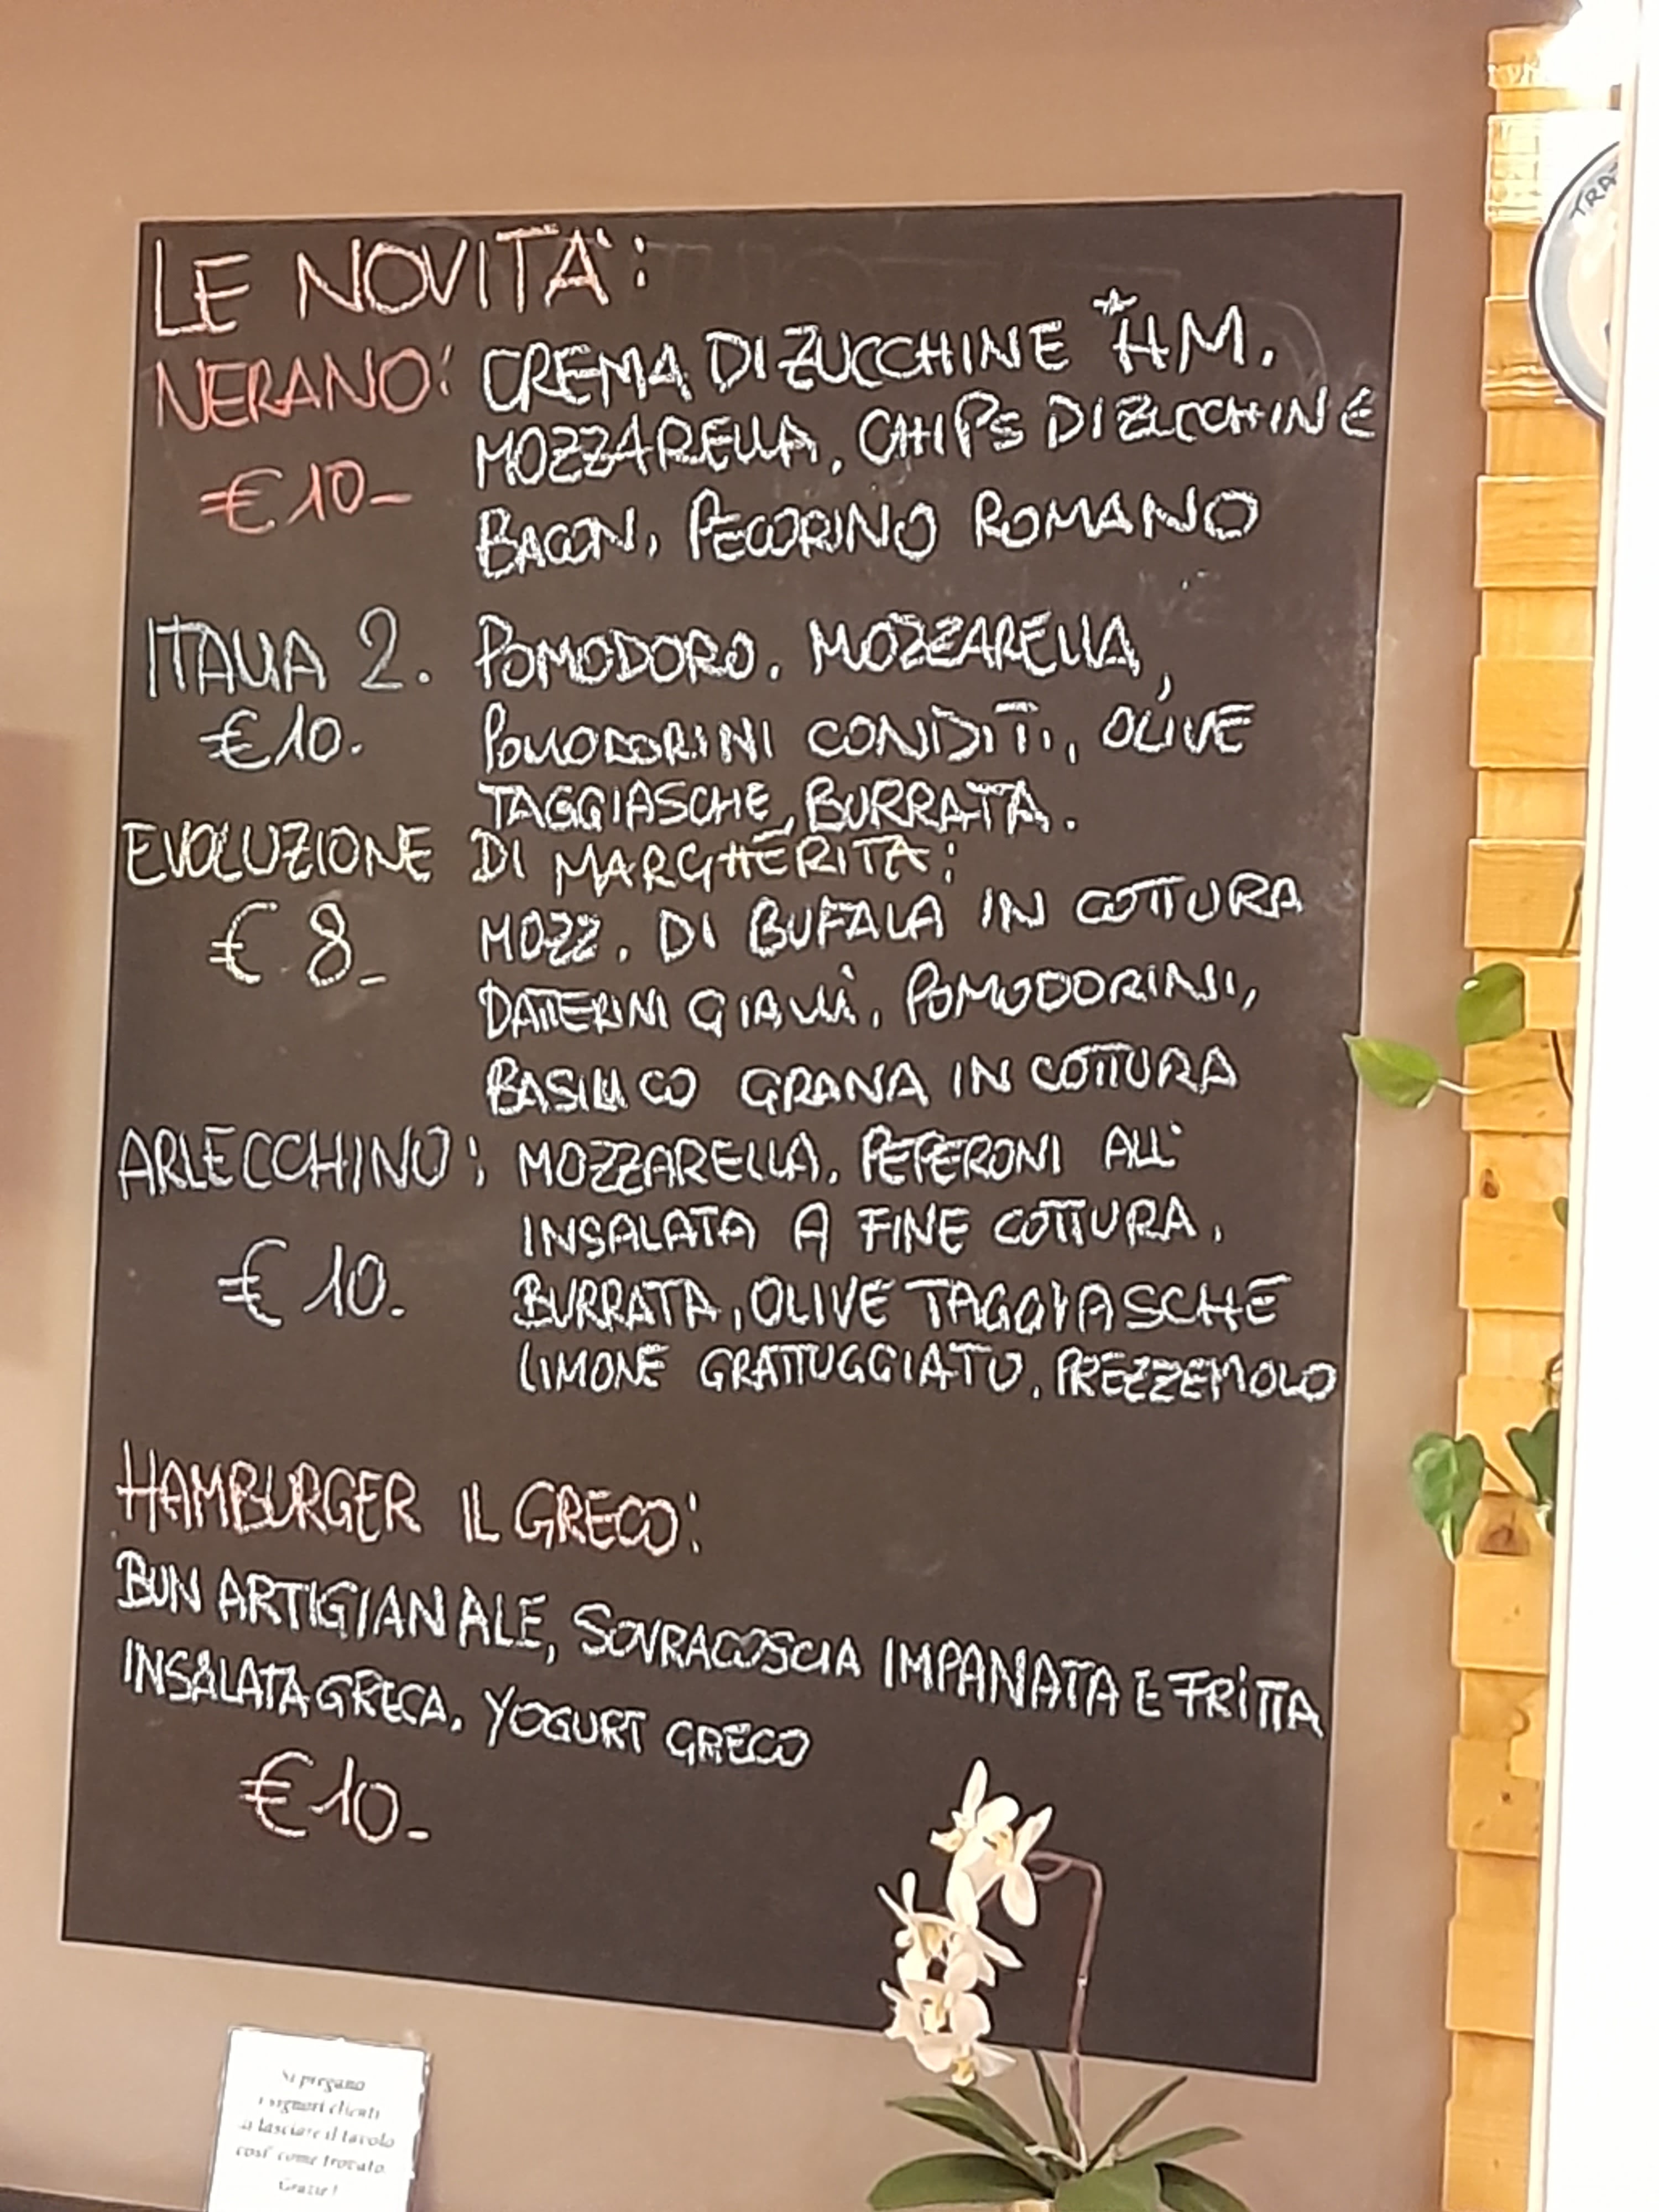 LE NOVITA':
NERANO: CREMA DI ZUCCHINE *HM.
MOZZARELLA, CHIPS DI ZUCCHINE
€ 10-
BACON, PECORINO ROMANO
ITALIA 2. POMODORO, MOZZARELLA,
€ 10. POMODORINI CONDITI, OLIVE
TAGGIASCHE, BURRATA.
EVOLUZIONE DI MARGHERITA:
€ 8- MOZZ. DI BUFALA IN COTTURA
DATTERINI GIALLI, POMODORINI,
BASILICO GRANA IN COTTURA
ARLECCHINO: MOZZARELLA, PEPERONI ALL'
INSALATA A FINE COTTURA,
€ 10. BURRATA, OLIVE TAGGIASCHE
LIMONE GRATTUGGIATO, PREZZEMOLO
HAMBURGER IL GRECO:
BUN ARTIGIANALE, SOVRACOSCIA IMPANATA E FRITTA
INSALATA GRECA, YOGURT GRECO
€ 10-
Si pregano
i signori clienti
di lasciare il tavolo
cosi' come trovato.
Grazie!
TRA